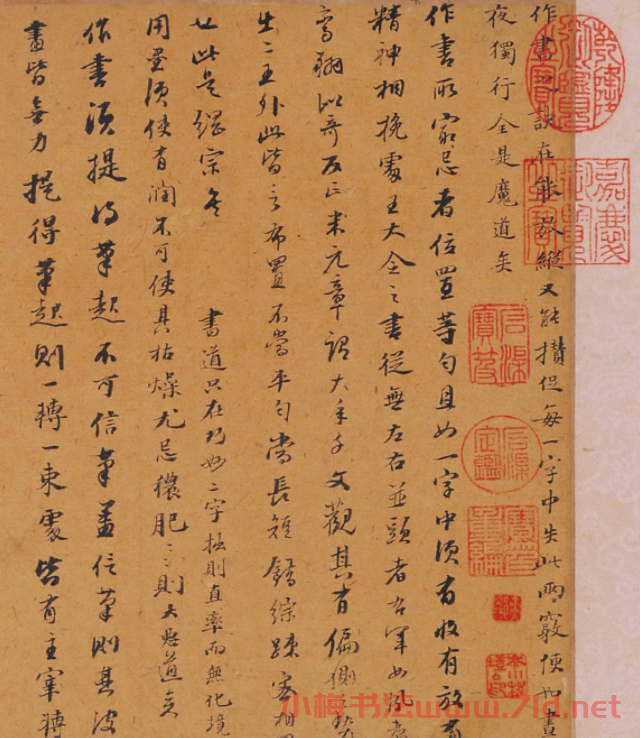 作書之訣在能放縱又能攢捉每一字中失此兩竅便如晝
夜獨行全是魔道矣
作書所最忌者位置等勻且如一字中須有收有放有
精神相挽處王大令之書從無左右並頭者右軍如鳳翥
鸞翔似奇反正米元章謂大年千文觀其有偏側之勢
出二王外此皆言布置不當平勻當長短錯綜疎密相間
也此是綱宗矣
書道只在巧妙二字拙則直率而無化境
用墨須使有潤不可使其枯燥尤忌穠肥〻〻則大惡道矣
作書須提得筆起不可信筆蓋信筆則其波
畫皆無力提得筆起則一轉一束處皆有主宰轉
乾隆御覽之寶
嘉慶御覽之寶
石渠寶笈
石渠定鑑
寶笈重編
小梅书法www.7ld.net